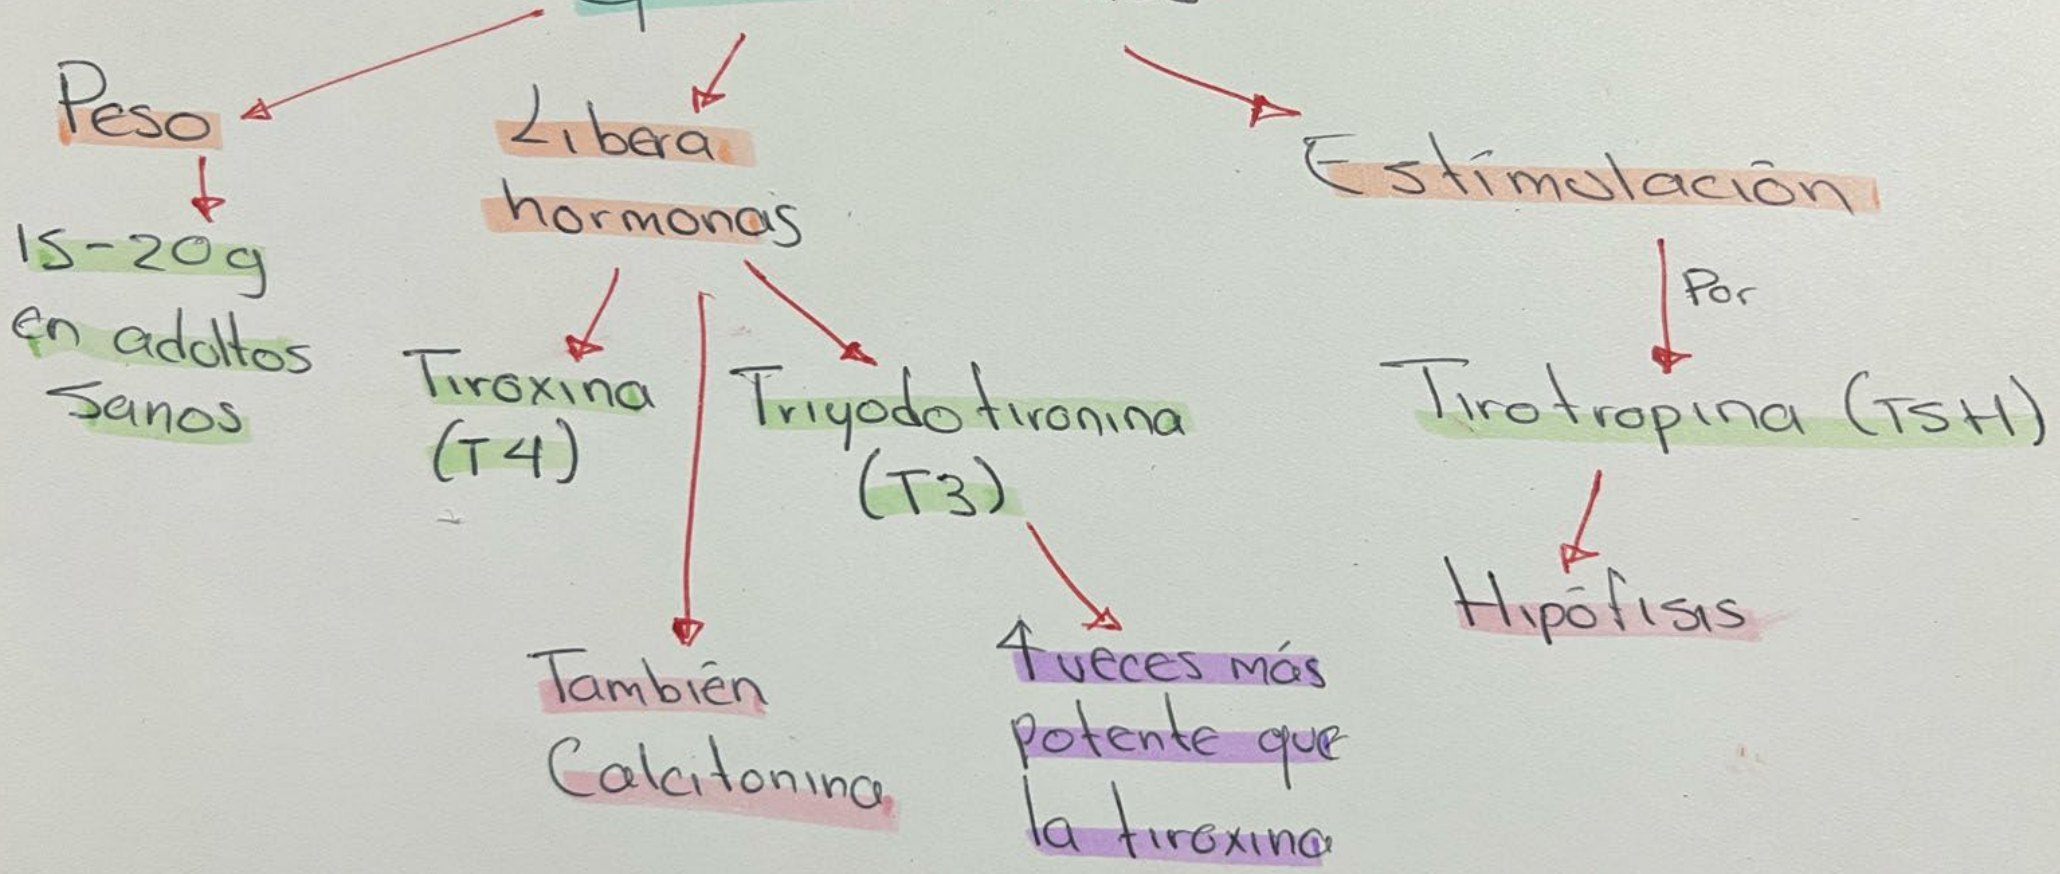 Peso
15-20g
en adultos
sanos
Libera
hormonas
Tiroxina
(T4)
Triyodotironina
(T3)
También
Calcitonina
4 veces más
potente que
la tiroxina
Estimulación
Por
Tirotropina (TSH)
Hipófisis